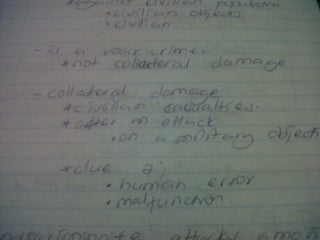 *against civilian population
• civilian objects
• civilian.
- is a war crime
* not collateral damage
- collateral damage
* civilian casualties.
* after an attack
• on a military objecti
* due 2:
• human error
• malfunction.
indiscriminate attacks amon